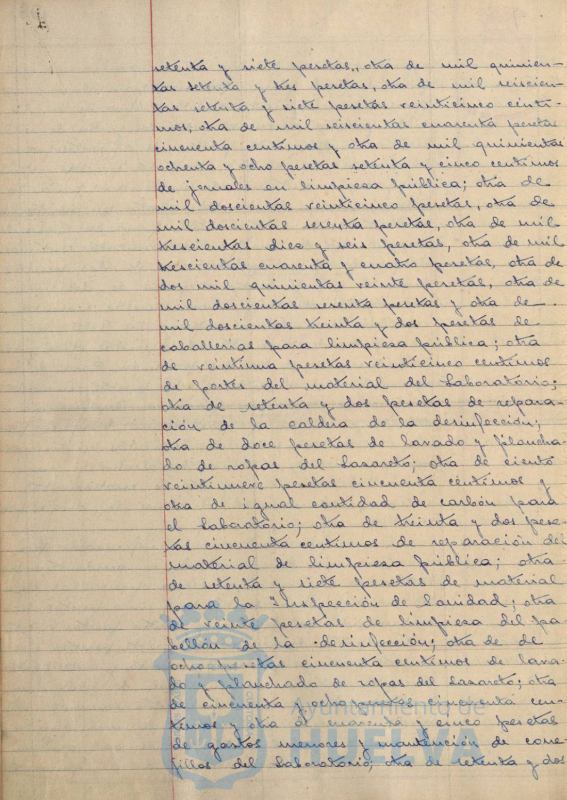 setenta y siete pesetas., otra de mil quinien-
tas setenta y tres pesetas, otra de mil seiscien-
tas setenta y siete pesetas veinticinco cénti-
mos, otra de mil seiscientas cuarenta pesetas
cincuenta centimos y otra de mil quinientas
ochenta y ocho pesetas setenta y cinco centimos
de jornales en limpieza pública; otra de
mil doscientas veinticinco pesetas, otra de
mil doscientas sesenta pesetas, otra de mil
trescientas diez y seis pesetas, otra de mil
trescientas cuarenta y cuatro pesetas, otra de
dos mil quinientas veinte pesetas, otra de
mil doscientas sesenta pesetas y otra de
mil doscientas treinta y dos pesetas de
caballerias para limpieza pública; otra
de veintiuna pesetas veinticinco centimos
de portes del material del Laboratório;
otra de setenta y dos pesetas de repara-
ción de la caldera de la desinfección;
otra de doce pesetas de lavado y plancha-
do de ropas del Lazareto; otra de ciento
veintinueve pesetas cincuenta céntimos y
otra de igual cantidad de carbón para
el Laboratório; otra de treinta y dos pese-
tas cincuenta centimos de reparación del
material de limpieza pública; otra
de setenta y siete pesetas de material
para la Inspección de Sanidad; otra
de veinte pesetas de limpieza del pa-
bellón de la desinfección; otra de de
ocho pesetas cincuenta centimos de lava-
do y planchado de ropas del Lazareto; otra
de cincuenta y ocho pesetas cincuenta cen-
temos y otra de cuarenta y cinco pesetas
de gastos menores y mantención de cone-
jillos del Laboratorio; otra de setenta y dos
Ayuntamiento de
HUELVA